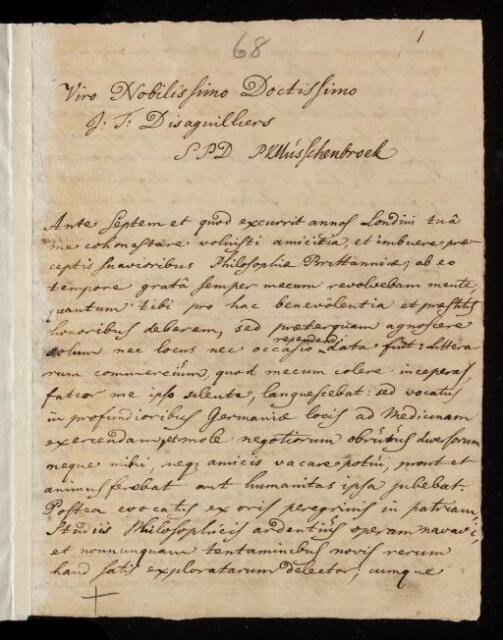 68
1
Viro Nobilissimo Doctissimo
J: T: Disaguilliers
S P D PVMusschenbroek
Ante Septem et quod excurrit annos Londini tuâ
me cohonestare voluisti amicitia, et imbuere præ
ceptis suavioribus Philosophiæ Brittanniæ; ab eo
tempore gratâ semper mecum revolvebam mente,
quantum tibi pro hac benevolentia et præstitis
honoribus deberem, sed præterquam agnoscere
rependendi
solum nec locus nec occasio data fuit: Littera
rum commercium, quod mecum colere inceperas,
fateor me ipso silente, languescebat: sed vocatus
in profundioribus Germaniæ locis ad Medicinam
exercendam, et mole negotiorum obrutus diversorum
neque mihi, neq; amicis vacare potui, prout et
animus ferebat aut humanitas ipsa jubebat.
Postea evocatus ex oris peregrinis in patriam,
Studiis Philosophicis ardentius operam navavi,
et nonnunquam tentaminibus novis rerum
haud satis exploratarum delector; cumque